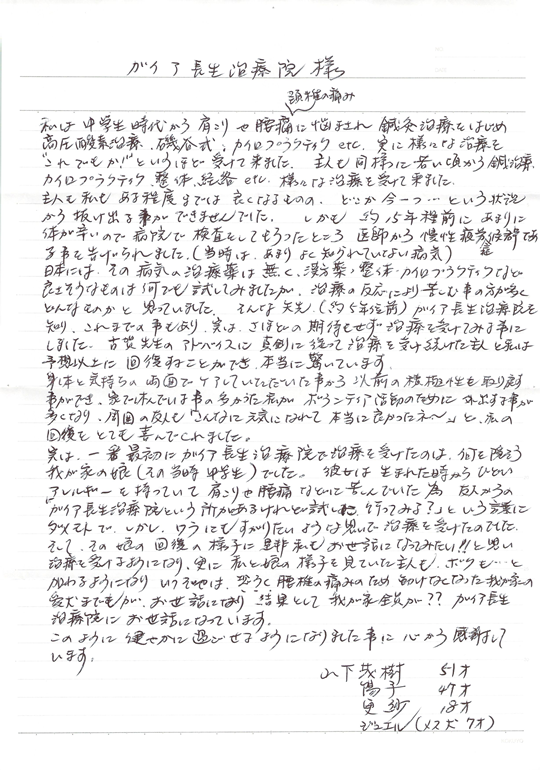 ガイア長生治療院様
頚椎の痛み
私は中学生時代から肩こりや腰痛に悩まされ 鍼灸治療をはじめ
高圧酸素治療、磯谷式、カイロプラクティク etc. 実に様々な治療を
"これでもか!"というほど受けて来ました。主人も同様に若い頃から鍼治療、
カイロプラクティク、整体、経絡 etc. 様々な治療を受けて来ました。
主人も私もある程度までは良くなるものの、どこか今一つ…という状況
から抜け出る事ができませんでした。しかも 約15年程前に あまりに
体が辛いので病院で検査をしてもらったところ 医師から慢性疲労症候群であ
る事を告げられました。(当時は、あまりよく知られていない病気)
日本には、その病気の治療薬は無く、漢方薬、整体、カイロプラクティクなど
良さそうなものは何でも試してみましたが、治療の反応により苦しむ事の方が多く
どんなものかと思っていました。そんな矢先、(約5年位前)ガイア長生治療院を
知り、これまでの事もあり、実は、さほどの期待もせず治療を受けてみる事に
しました。古賀先生のアドバイスに真剣に従って治療を受け続けた主人と私は
予想以上に回復することができ、本当に驚いています。
身体と気持ちの両面でケアしていただいた事から 以前の積極性を取り戻す
事ができ、家で休んでいる事の多かった私が ボランティア活動のために外出する事が
多くなり、周囲の友人も「こんなに元気になれて本当に良かったネ~」と、私の
回復をとても喜んでくれました。
実は、一番最初にガイア長生治療院で治療を受けたのは、何を隠そう
我が家の娘(その当時中学生)でした。彼女は生まれた時からひどい
アレルギーを持っていて肩こりや腰痛などに苦しんでいた為 友人からの
「ガイア長生治療院という所があるけれど試しに行ってみる?」という言葉に
ダメモトで、しかし、ワラにもすがりたいような思いで治療を受けたのでした。
そして、その娘の回復の様子に是非私もお世話になってみたい!!と思い
治療を受けるようになり、更に私と娘の様子を見ていた主人も、ボツボツ…と
加わるようになり いつぞやは、恐らく腰椎の痛みのため動けなくなった我が家の
愛犬までもが、お世話になり 結果として 我が家全員が?? ガイア長生
治療院にお世話になっています。
このように健やかに過ごせるようになりました事に心から感謝して
います。
山下茂樹 51才
陽子 47才
更紗 18才
ジュエル(メス犬 7才)